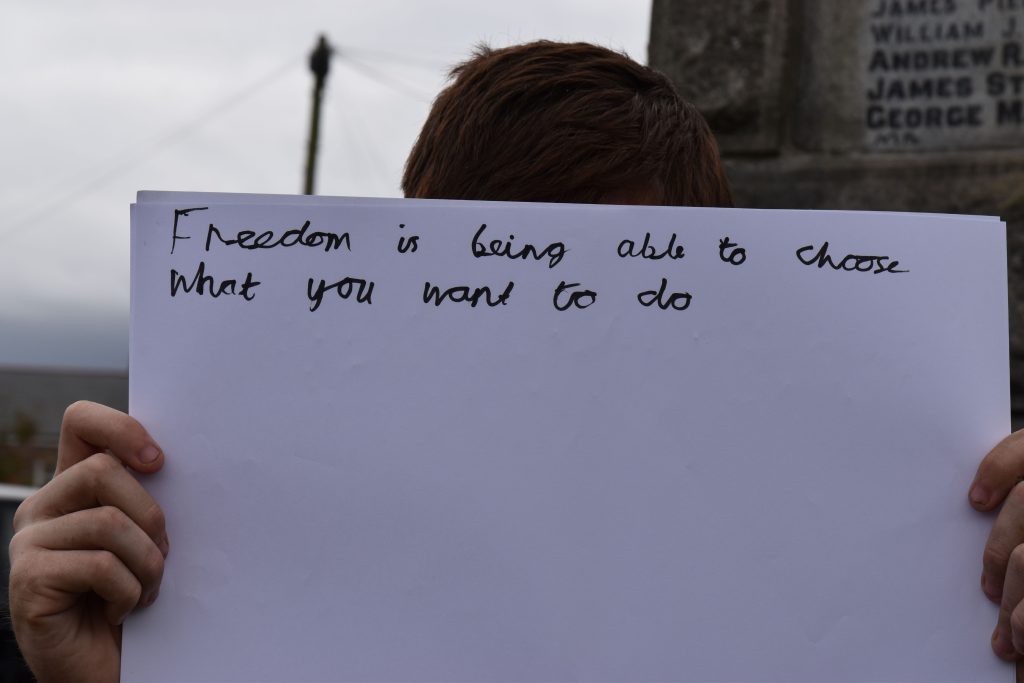 JAMES
WILLIAM J.
ANDREW R.
JAMES ST
GEORGE M
Freedom is being able to choose
what you want to do